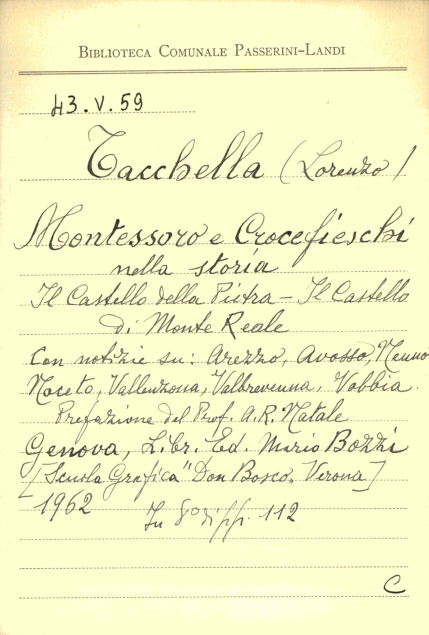 BIBLIOTECA COMUNALE PASSERINI-LANDI
43.V.59
Tacchella (Lorenzo)
Montessoro e Crocefieschi
nella storia
Il Castello della Pietra - Il Castello
di Monte Reale
Con notizie su: Arezzo, Avosso, Nenno
Noceto, Vallenzona, Valbrevenna, Vobbia.
Prefazione del Prof. A.R. Natale
Genova, Libr. Ed. Mario Bozzi
[Scuola Grafica "Don Bosco" Verona]
1962 In 8° di pp. 112
C